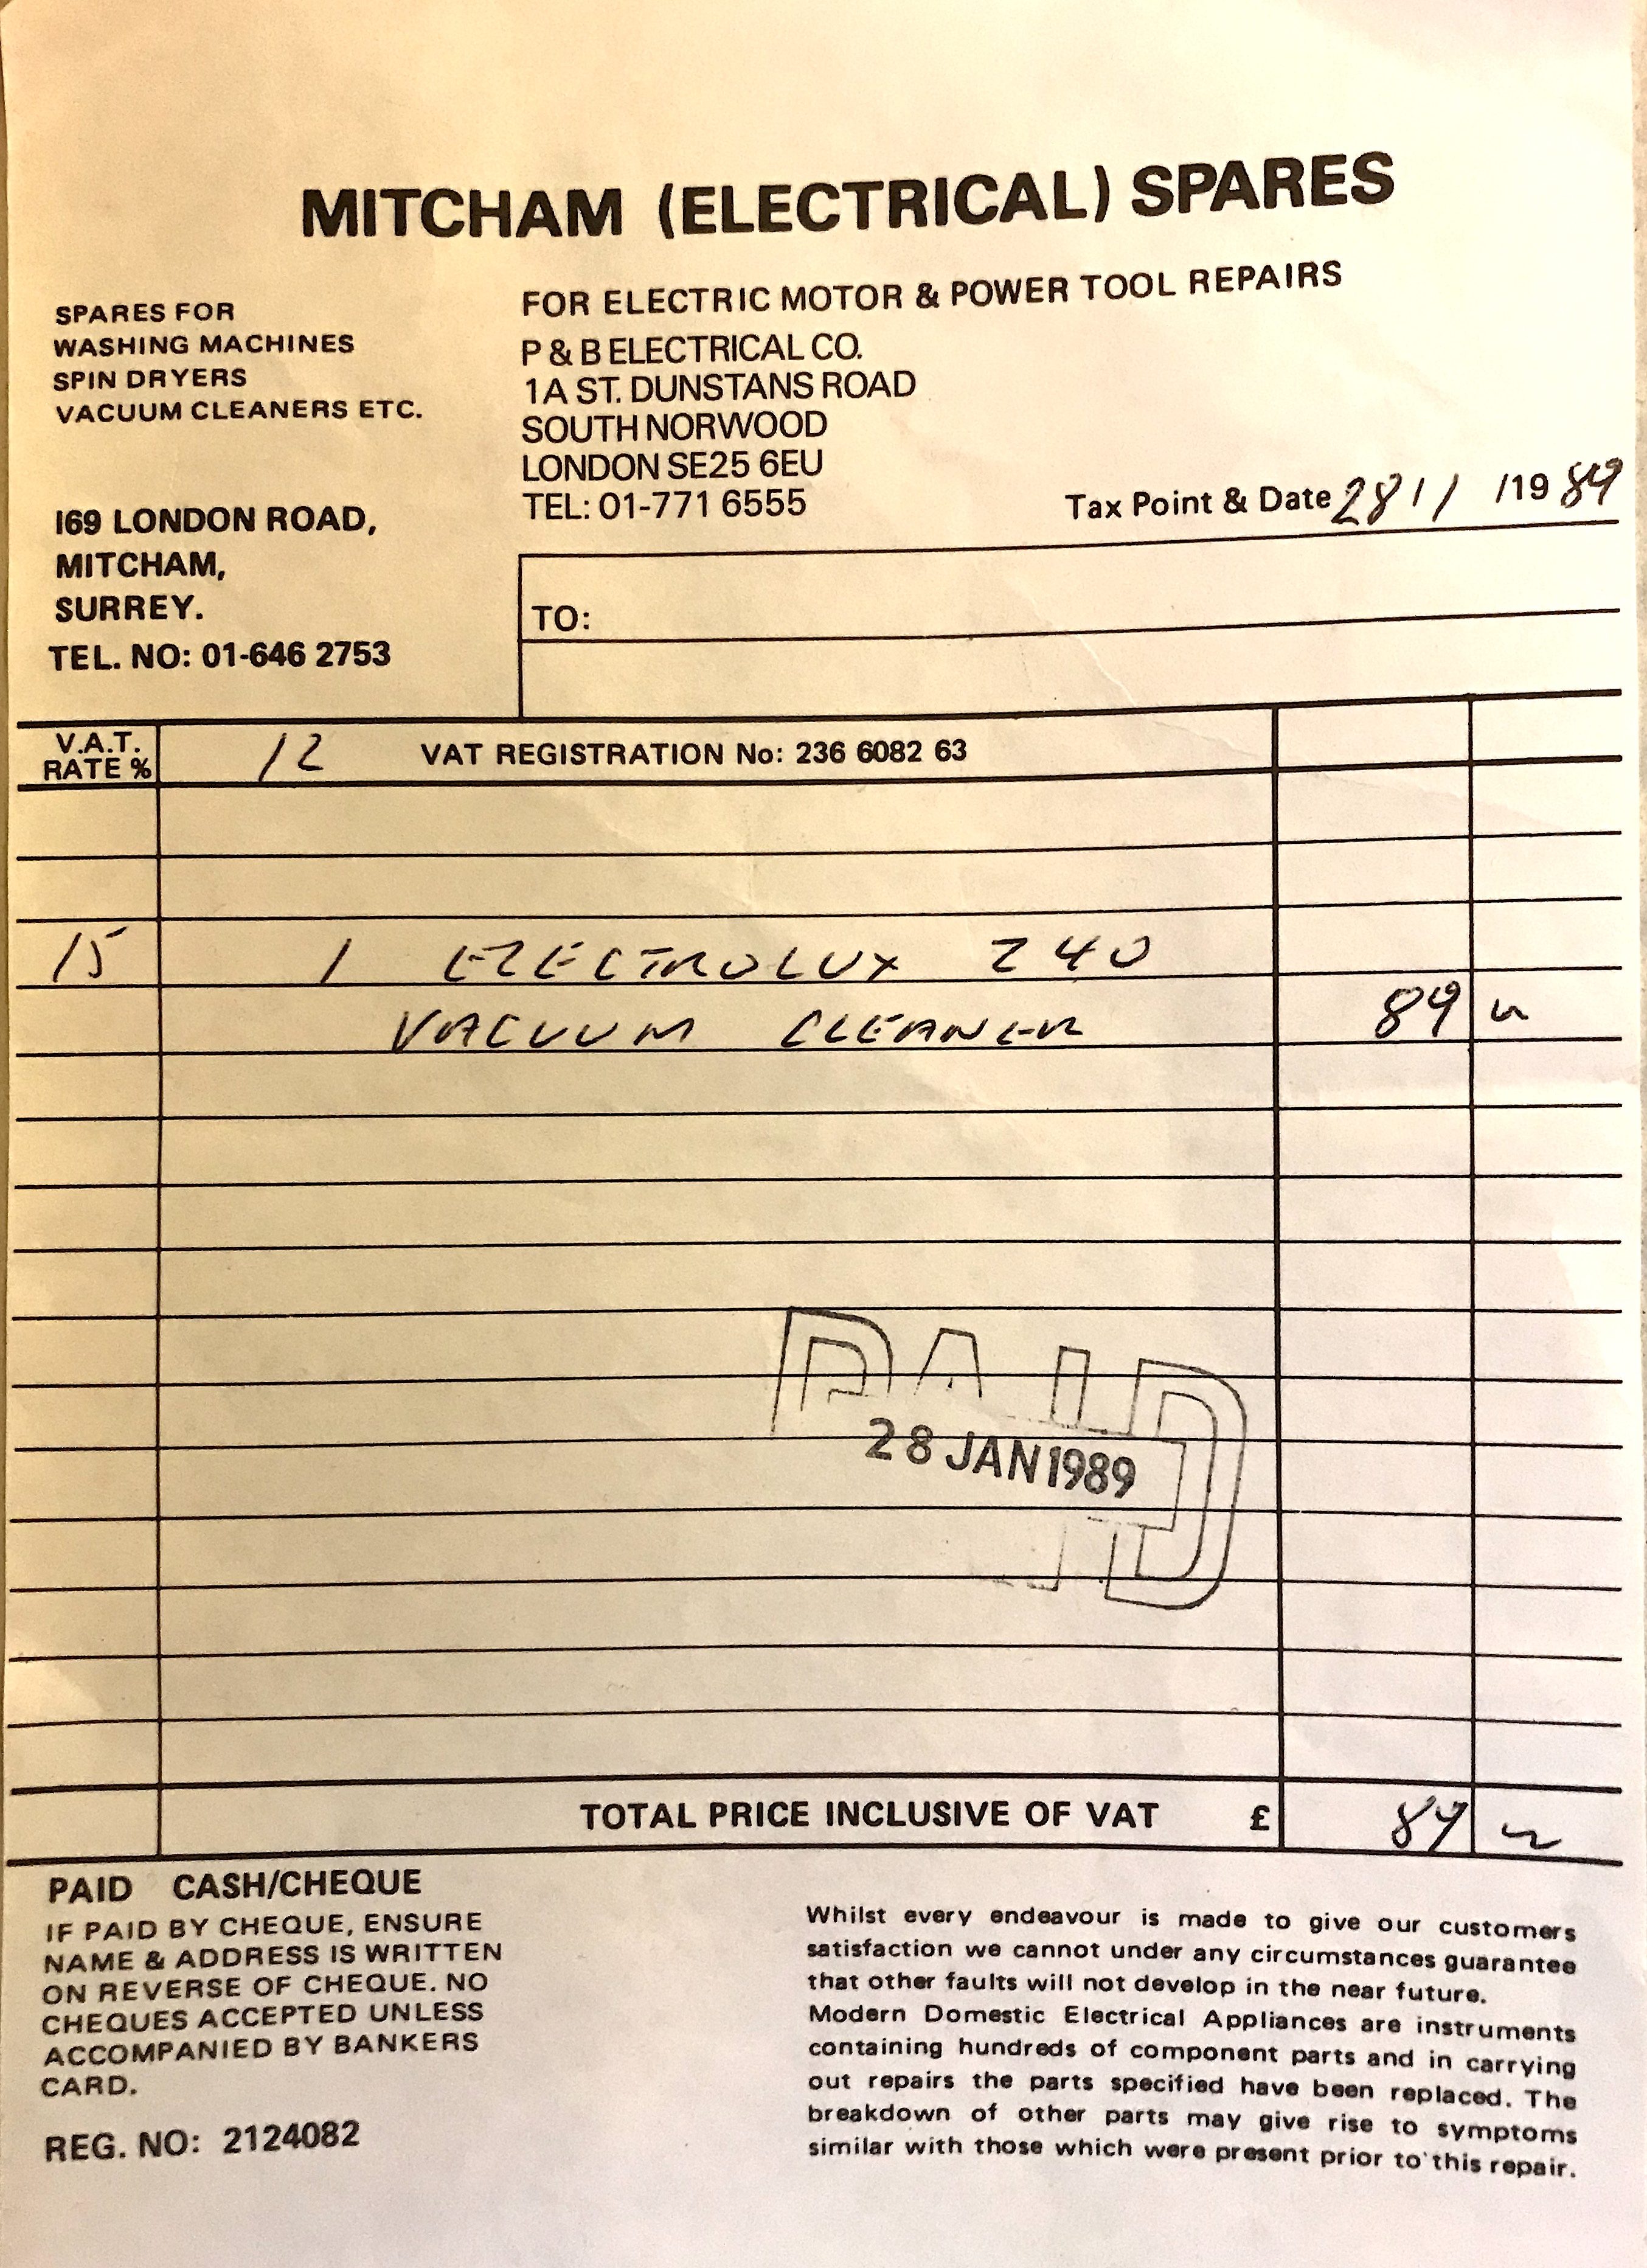 MITCHAM (ELECTRICAL) SPARES
SPARES FOR
WASHING MACHINES
SPIN DRYERS
VACUUM CLEANERS ETC.
FOR ELECTRIC MOTOR & POWER TOOL REPAIRS
P & B ELECTRICAL CO.
1A ST. DUNSTANS ROAD
SOUTH NORWOOD
LONDON SE25 6EU
TEL: 01-771 6555
169 LONDON ROAD,
MITCHAM,
SURREY.
TEL. NO: 01-646 2753
Tax Point & Date 28 / 1 /19 89
TO:
V.A.T.
RATE %
12 VAT REGISTRATION No: 236 6082 63
15 1 ELECTROLUX Z40
VACUUM CLEANER 89
PAID
28 JAN 1989
TOTAL PRICE INCLUSIVE OF VAT £ 89
PAID CASH/CHEQUE
IF PAID BY CHEQUE, ENSURE
NAME & ADDRESS IS WRITTEN
ON REVERSE OF CHEQUE. NO
CHEQUES ACCEPTED UNLESS
ACCOMPANIED BY BANKERS
CARD.
REG. NO: 2124082
Whilst every endeavour is made to give our customers
satisfaction we cannot under any circumstances guarantee
that other faults will not develop in the near future.
Modern Domestic Electrical Appliances are instruments
containing hundreds of component parts and in carrying
out repairs the parts specified have been replaced. The
breakdown of other parts may give rise to symptoms
similar with those which were present prior to this repair.